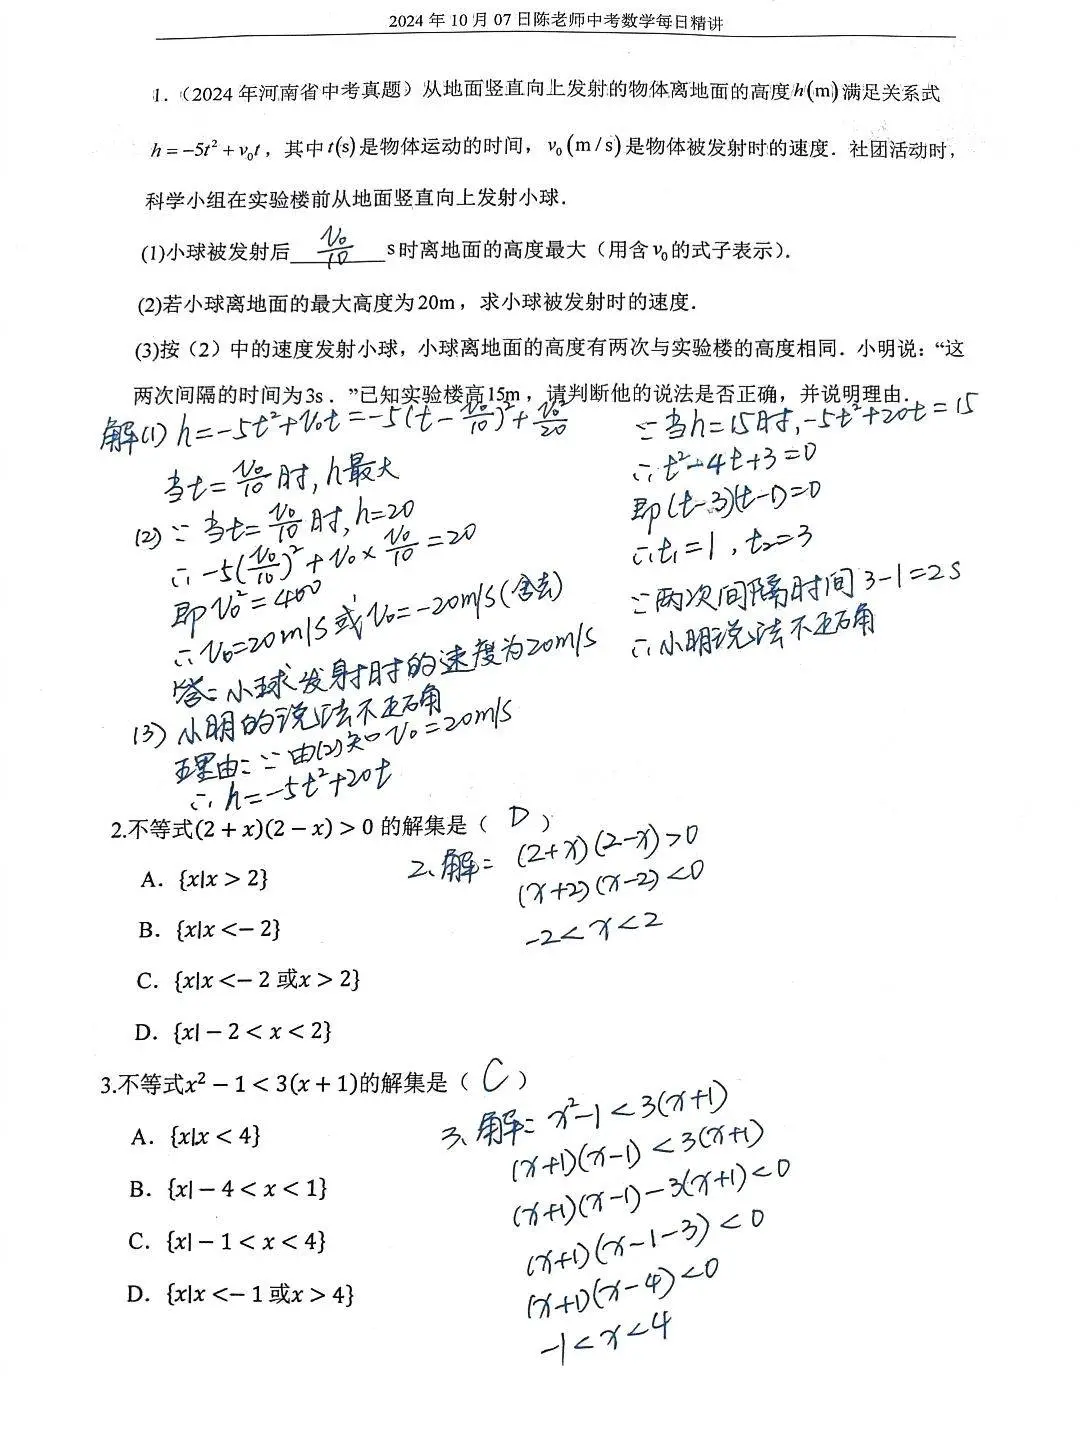 2024 年 10 月 07 日陈老师中考数学每日精讲
1.（2024 年河南省中考真题）从地面竖直向上发射的物体离地面的高度 h(m) 满足关系式
h = −5t² + v₀t，其中 t(s) 是物体运动的时间，v₀(m/s) 是物体被发射时的速度．社团活动时，
科学小组在实验楼前从地面竖直向上发射小球．
(1)小球被发射后 v₀/10 s 时离地面的高度最大（用含 v₀ 的式子表示）．
(2)若小球离地面的最大高度为 20m，求小球被发射时的速度．
(3)按（2）中的速度发射小球，小球离地面的高度有两次与实验楼的高度相同．小明说：“这
两次间隔的时间为 3s．”已知实验楼高 15m，请判断他的说法是否正确，并说明理由．
解(1) h=-5t²+v₀t=-5(t-v₀/10)²+v₀²/20
当t=v₀/10时,h最大
(2) ∵当t=v₀/10时,h=20
∴-5(v₀/10)²+v₀×v₀/10=20
即v₀²=400
∴v₀=20m/s或v₀=-20m/s(舍去)
答:小球发射时的速度为20m/s
(3) 小明的说法不正确
理由:∵由(2)知v₀=20m/s
∴h=-5t²+20t
∵当h=15时,-5t²+20t=15
∴t²-4t+3=0
即(t-3)(t-1)=0
∴t₁=1,t₂=3
∵两次间隔时间3-1=2s
∴小明说法不正确
2.不等式(2 + x)(2 − x) > 0 的解集是（ D ）
A. {x|x > 2}
B. {x|x <− 2}
C. {x|x <− 2 或x > 2}
D. {x| − 2 < x < 2}
2、解: (2+x)(2-x)>0
(x+2)(x-2)<0
-2<x<2
3.不等式x² − 1 < 3(x + 1)的解集是（ C ）
A. {x|x < 4}
B. {x| − 4 < x < 1}
C. {x| − 1 < x < 4}
D. {x|x <− 1 或x > 4}
3、解: x²-1<3(x+1)
(x+1)(x-1)<3(x+1)
(x+1)(x-1)-3(x+1)<0
(x+1)(x-1-3)<0
(x+1)(x-4)<0
-1<x<4